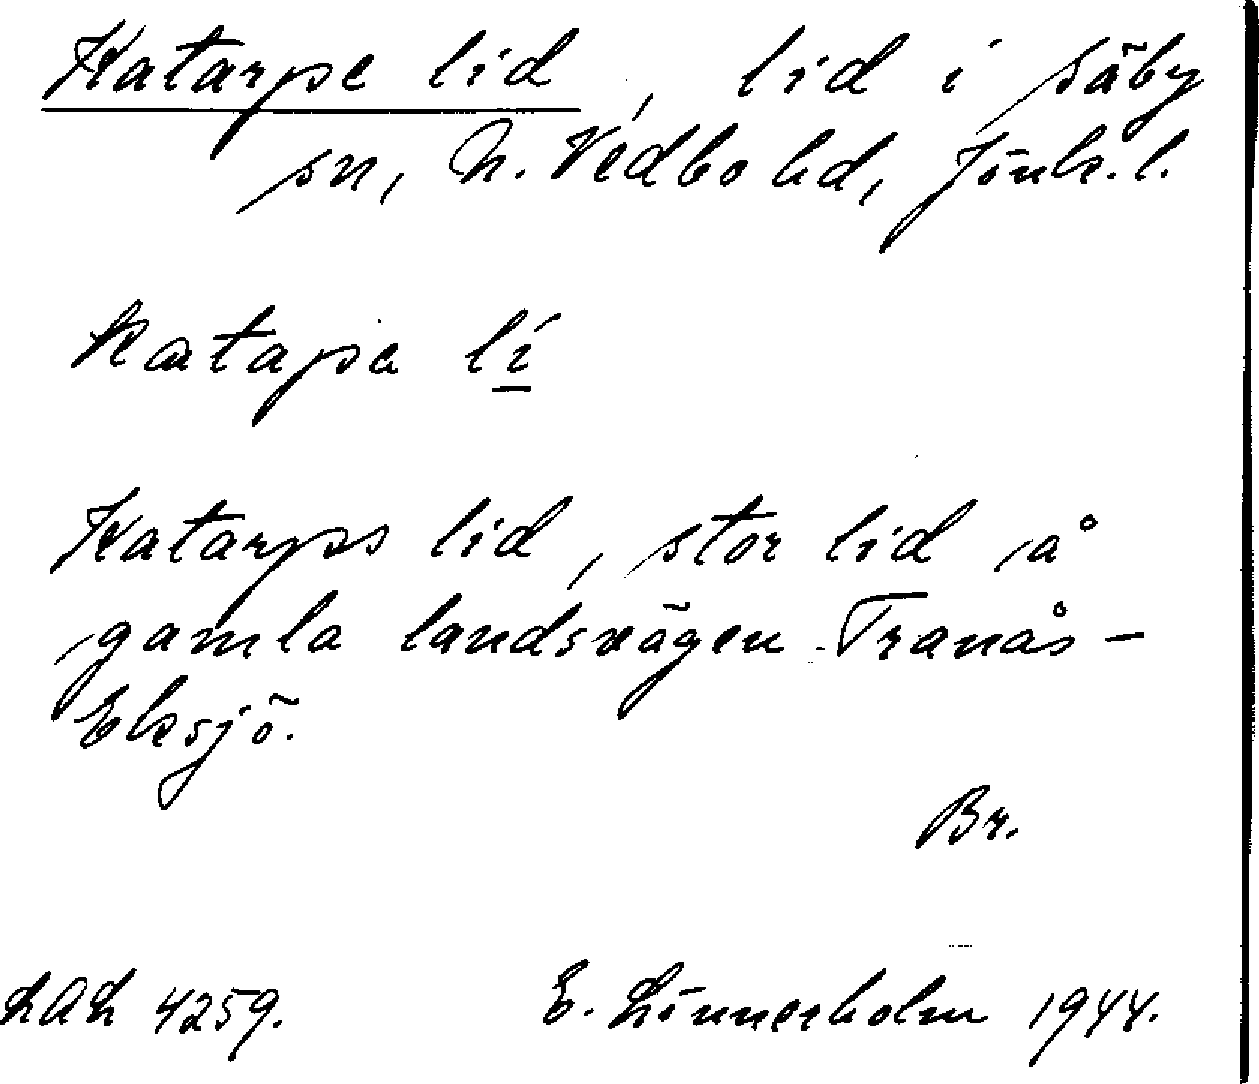 Katarpe lid, lid i Säby
sn, N. Vedbo hd, Jönk. l.
katapa lí
Katarps lid, stor lid å
gamla landsvägen Tranås -
Eksjö.
Br.
LAL 4259. E. Linnerholm 1944.